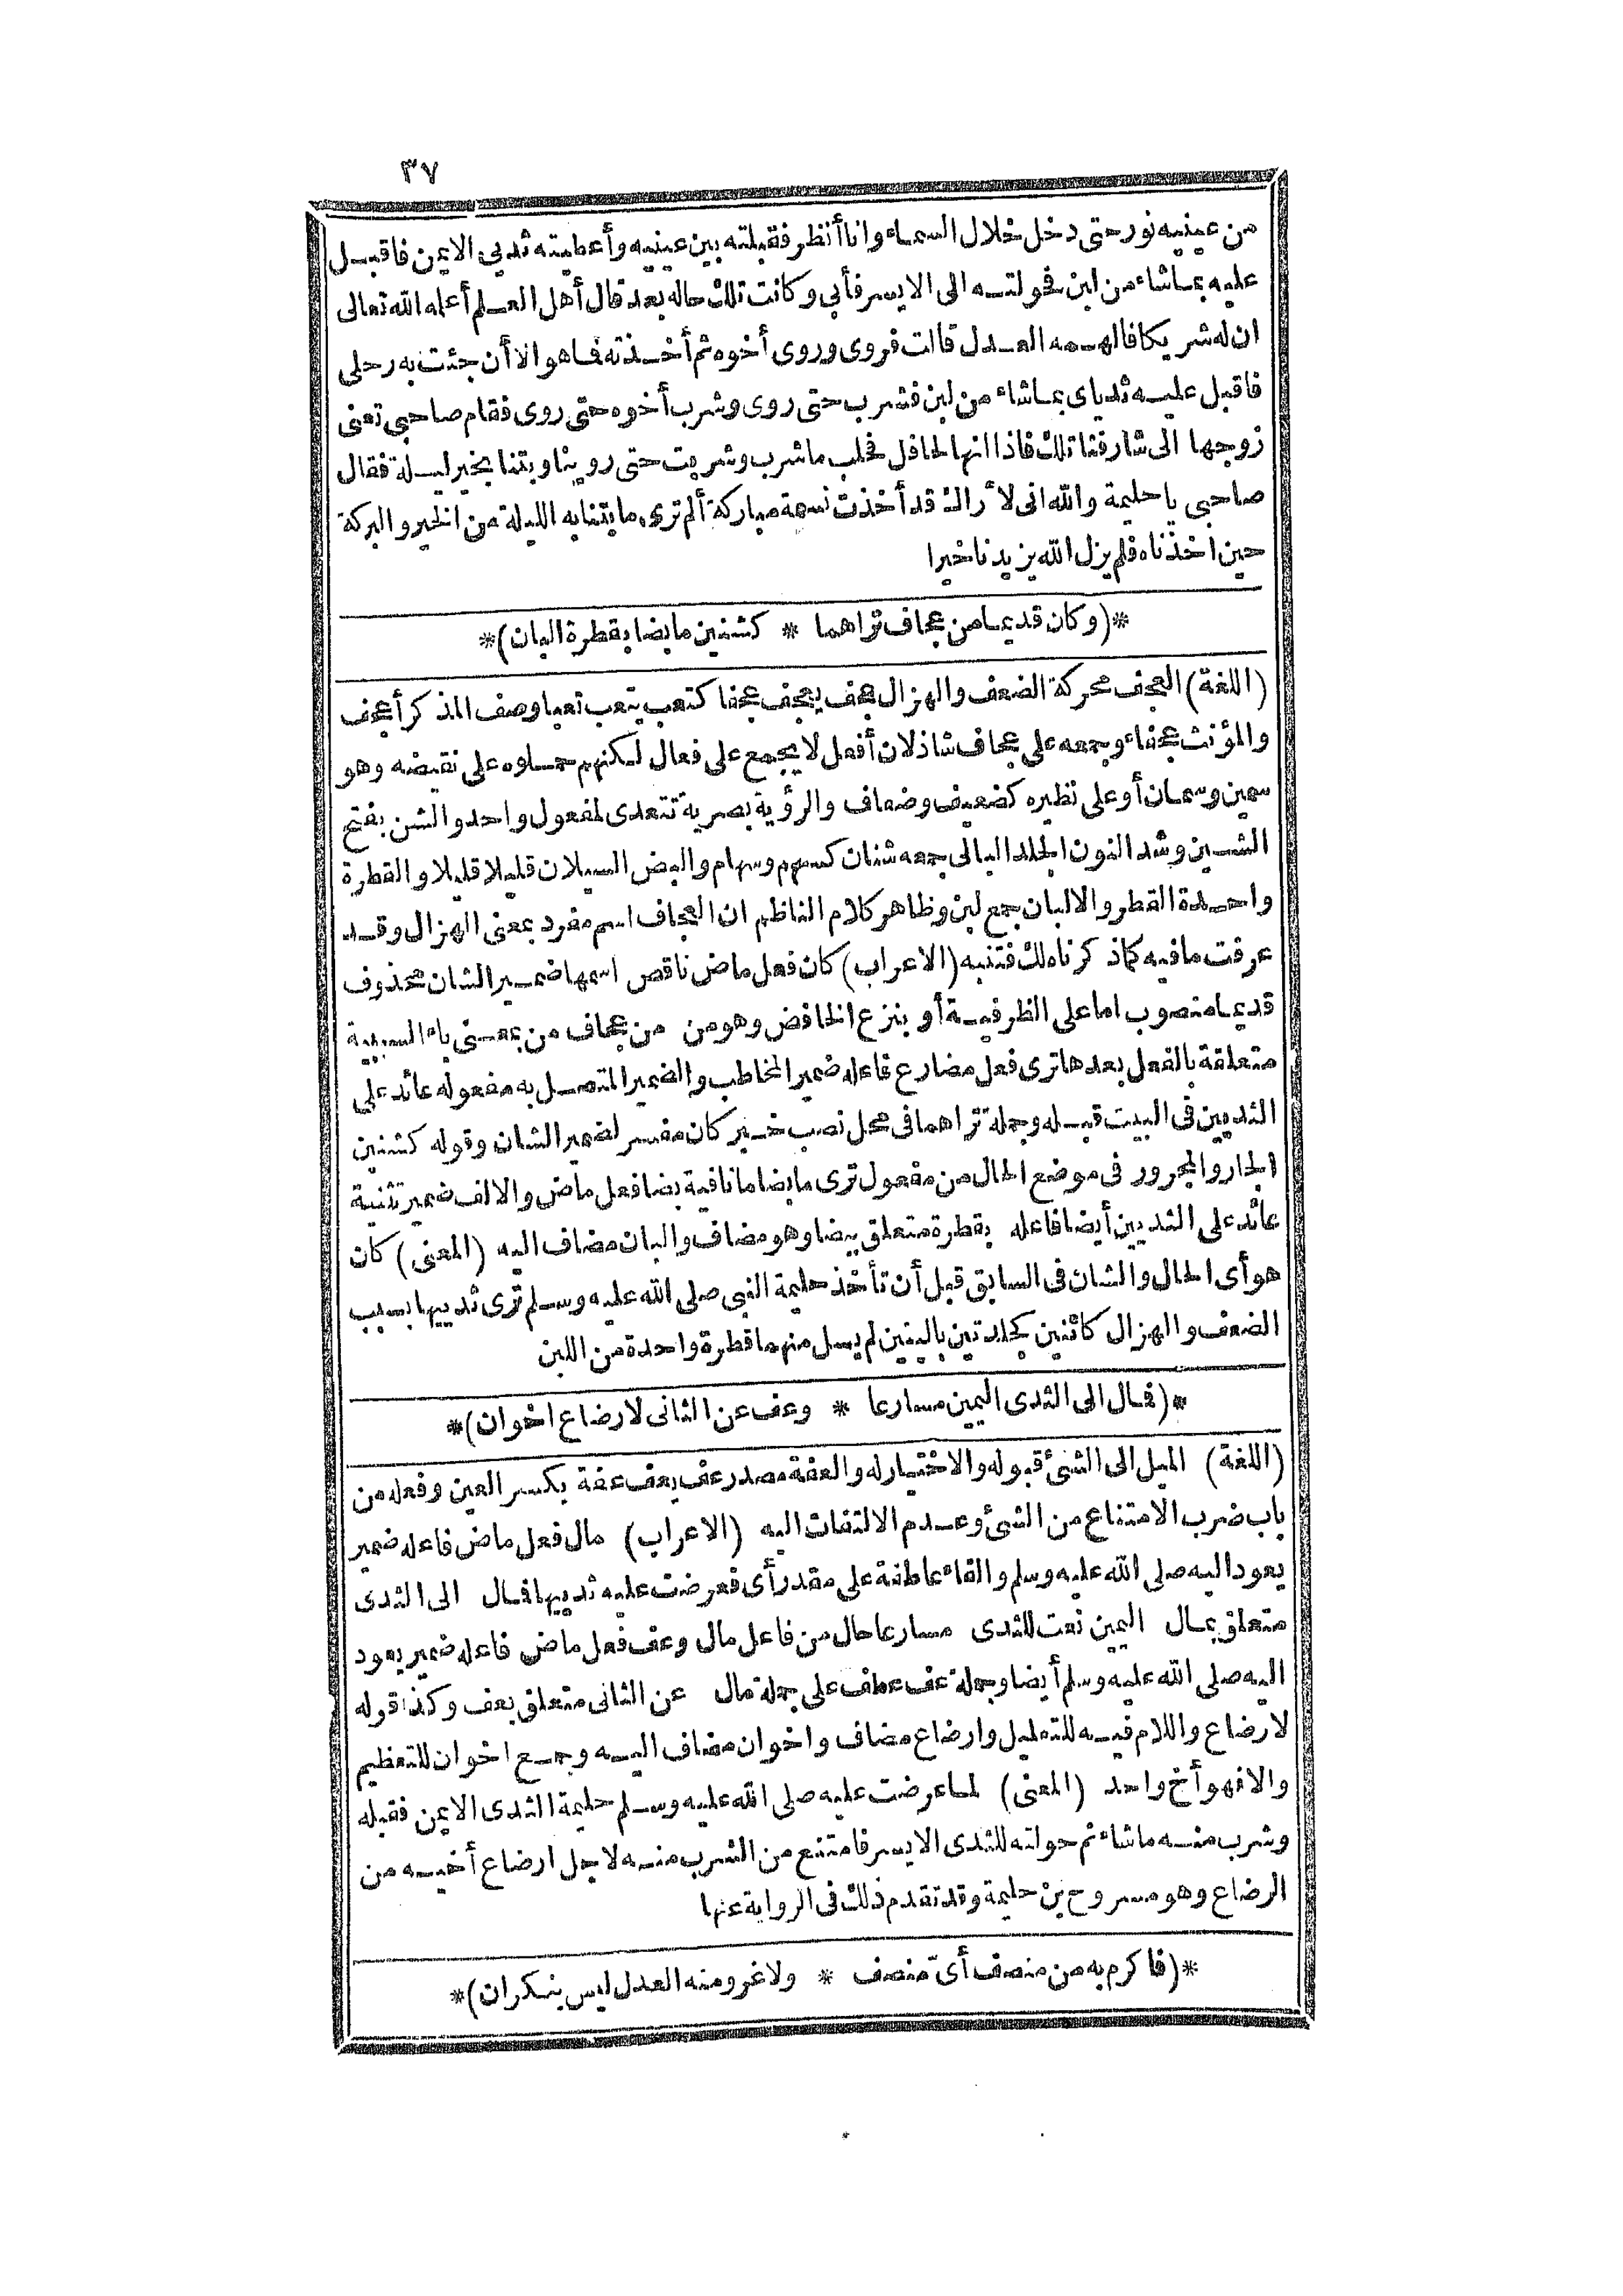 ٣٧
من عينيه نور حتى دخل خلال السماء وانا أنظر فقبلته بين عينيه وأعطيته ثديي الايمن فاقبل
عليه بماشاء من لبن فحولته الى الايسر فأبى وكانت تلك حاله بعد قال أهل العلم أعلمه الله تعالى
ان له شريكا فالهمه العدل قالت فروى وروى أخوه ثم أخذته فما هو الا أن جئت به رحلي
فاقبل عليه ثدياى بماشاء من لبن فشرب حتى روى وشرب أخوه حتى روى فقام صاحبى تعنى
زوجها الى شارفنا تلك فاذا انها لحافل فحلب ماشرب وشربت حتى روينا وبتنا بخير ليلة فقال
صاحبى ياحليمة والله انى لأراك قد أخذت نسمة مباركة ألم ترى مابتنا به الليلة من الخير والبركة
حين اخذناه فلم يزل الله يزيدنا خيرا
*(وكان قديما من عجاف تراهما * كشنين مابضا بقطرة البان)*
(اللغة) العجف محركة الضعف والهزال عجف يعجف عجفا كتعب يتعب تعبا وصف المذكر أعجف
والمؤنث عجفاء وجمعه على عجاف شاذ لان أفعل لا يجمع على فعال لكنهم حملوه على نقيضه وهو
سمين وسمان أو على نظيره كضعيف وضعاف والرؤية بصرية تتعدى لمفعول واحد والشن بفتح
الشين وشد النون الجلد البالى جمعه شنان كسهم وسهام والبض السيلان قليلا قليلا والقطرة
واحدة القطر والالبان جمع لبن وظاهر كلام الناظم ان العجاف اسم مفرد بمعنى الهزال وقد
عرفت مافيه كماذكرناه لك فتنبه (الاعراب) كان فعل ماض ناقص اسمها ضمير الشان محذوف
قديما منصوب اما على الظرفية أو بنزع الخافض وهو من من عجاف من بمعنى باء السببية
متعلقة بالفعل بعدها ترى فعل مضارع فاعله ضمير المخاطب والضمير المتصل به مفعوله عائد على
الثديين فى البيت قبله وجملة تراهما فى محل نصب خبر كان مفسر لضمير الشان وقوله كشنين
الجار والمجرور فى موضع الحال من مفعول ترى مابضا ما نافية بضا فعل ماض والالف ضمير تثنية
عائد على الثديين أيضا فاعله بقطرة متعلق ببضا وهو مضاف والبان مضاف اليه (المعنى) كان
هو أى الحال والشان فى السابق قبل أن تأخذ حليمة النبى صلى الله عليه وسلم ترى ثدييها بسبب
الضعف والهزال كائنين كجلدتين باليتين لم يسل منهما قطرة واحدة من اللبن
*(فمال الى الثدى اليمين مسارعا * وعف عن الثانى لارضاع اخوان)*
(اللغة) الميل الى الشئ قبوله والاختيار له والعفة مصدر عف يعف عفة بكسر العين وفعله من
باب ضرب الامتناع من الشئ وعدم الالتفات اليه (الاعراب) مال فعل ماض فاعله ضمير
يعود اليه صلى الله عليه وسلم والفاء عاطفة على مقدر أى فعرضت عليه ثدييها فمال الى الثدى
متعلق بمال اليمين نعت للثدى مسارعا حال من فاعل مال وعف فعل ماض فاعله ضمير يعود
اليه صلى الله عليه وسلم أيضا وجملة عف عطف على جملة مال عن الثانى متعلق بعف وكذا قوله
لارضاع واللام فيه للتعليل وارضاع مضاف واخوان مضاف اليه وجمع اخوان للتعظيم
والا فهو أخ واحد (المعنى) لما عرضت عليه صلى الله عليه وسلم حليمة الثدى الايمن فقبله
وشرب منه ماشاء ثم حولته للثدى الايسر فامتنع من الشرب منه لاجل ارضاع أخيه من
الرضاع وهو مسروح بن حليمة وقد تقدم ذلك فى الرواية عنها
*(فا كرم به من منصف أىّ منصف * ولا غرو منه العدل ليس بنكران)*